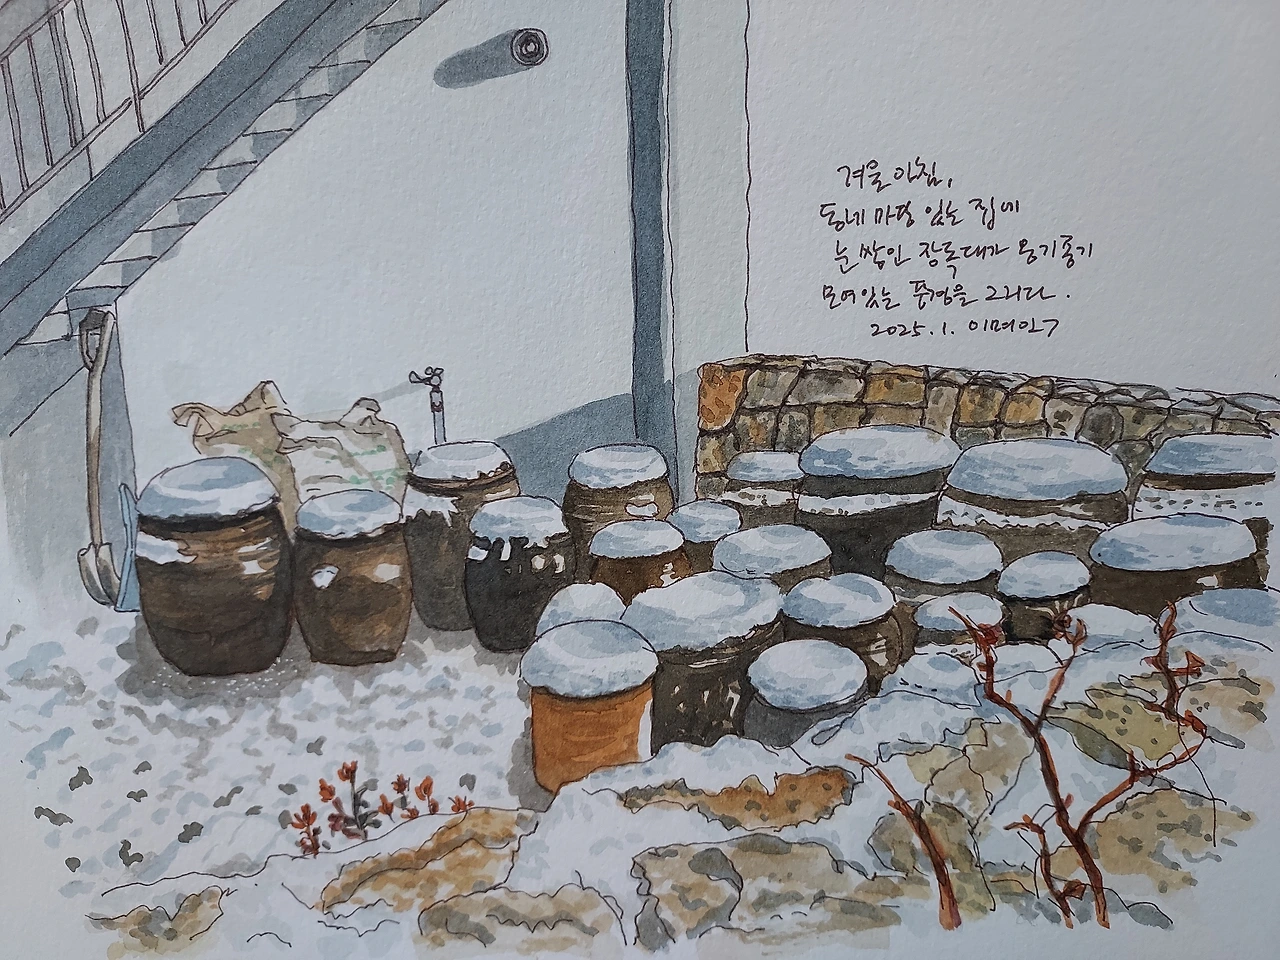 겨울 아침,
동네 마당 있는 집에
눈 쌓인 장독대가 옹기종기
모여있는 풍경을 그리다.
2025.1.